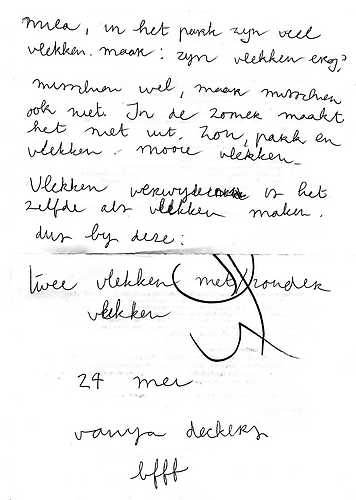 mila, in het park zijn veel
vlekken. maar: zijn vlekken erg?
misschien wel, maar misschien
ook niet. In de zomer maakt
het niet uit. zon, park en
vlekken - mooie vlekken -
Vlekken verwijderen is het
zelfde als vlekken maken.
dus bij deze:
twee vlekken met/zonder
vlekken
24 mei
vanja deckers
bfff